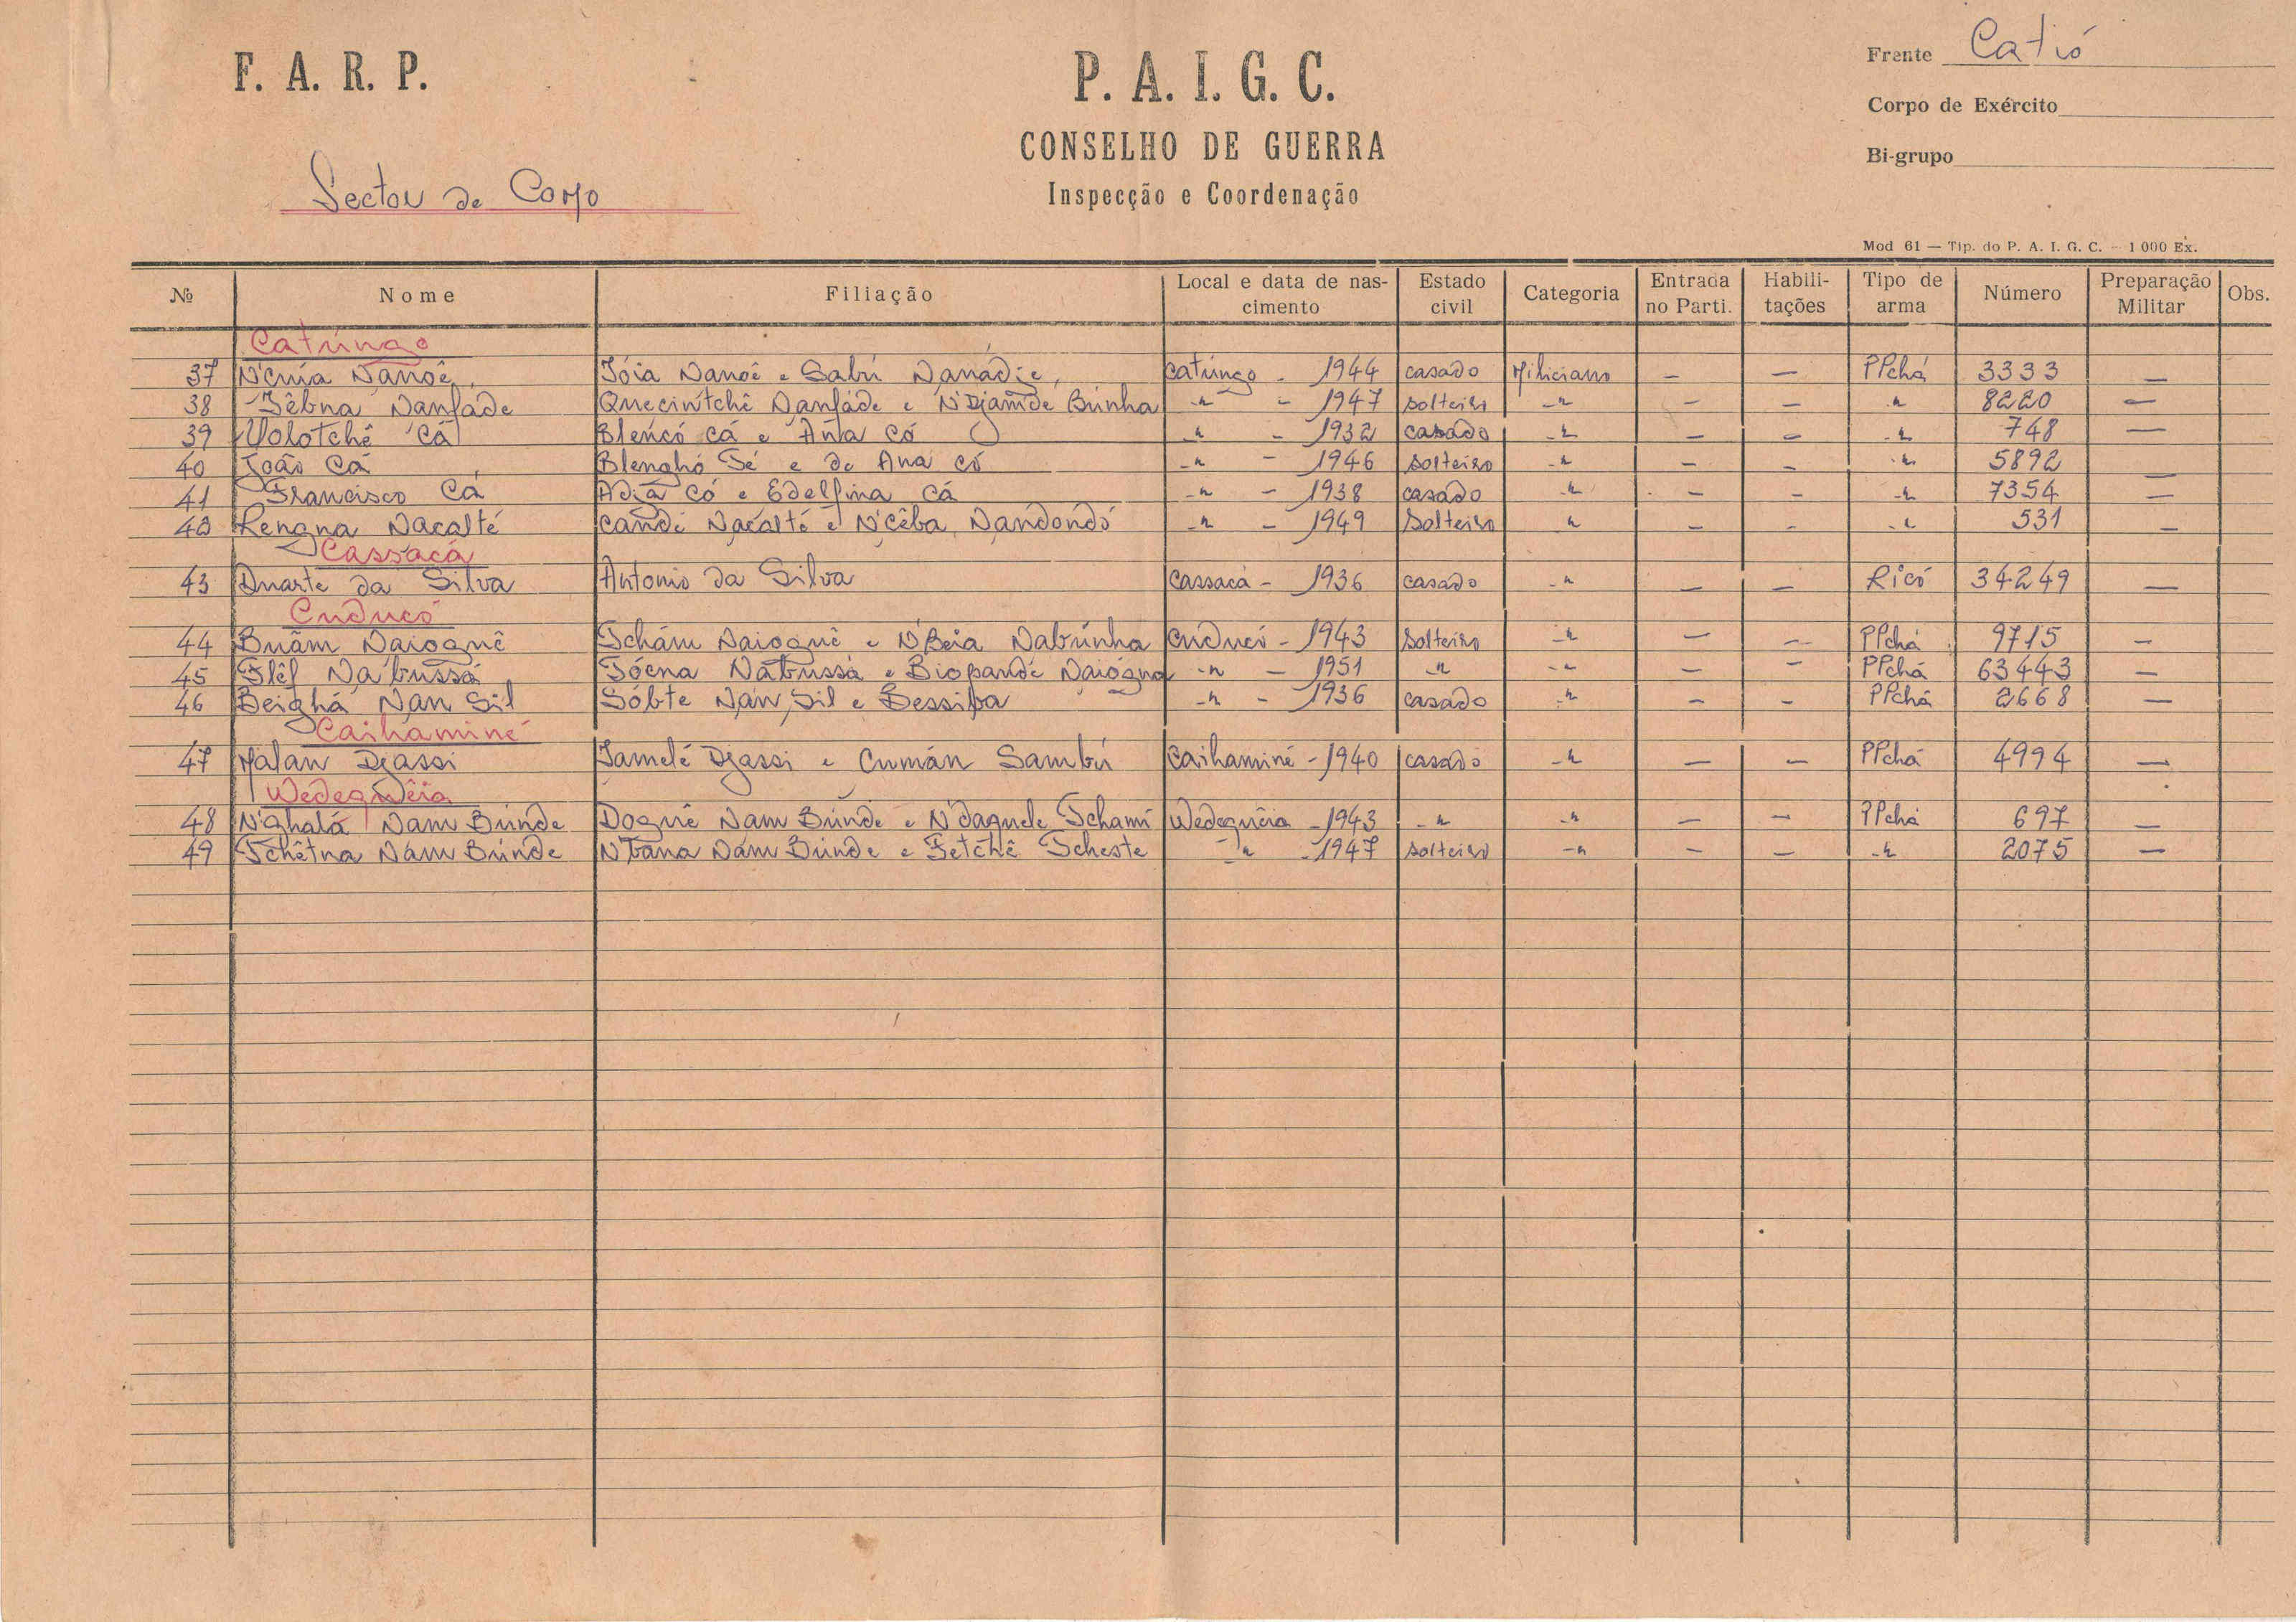 F. A. R. P.
P. A. I. G. C.
CONSELHO DE GUERRA
Inspecção e Coordenação
Frente Catió
Corpo de Exército
Bi-grupo
Sector de Como
Mod 61 — Tip. do P. A. I. G. C. - 1 000 Ex.
№ Nome Filiação Local e data de nascimento Estado civil Categoria Entrada no Parti. Habilitações Tipo de arma Número Preparação Militar Obs.
Catúngo
37 N'cuia Nanoê Tóia Nanoê e Sabú Nanádje, catúngo - 1944 casado Miliciano — — PPchá 3333 —
38 Têbna Nanfade Quecintchê Nanfáde e N'Djamde Búnha -"- - 1947 solteiro -" — — " 8220 —
39 Uolotchê Cá Blencó cá e Ana Có -" - 1932 casado -" — — -" 748 —
40 João Cá Blenghó Té e de Ana có -" - 1946 solteiro -" — — -" 5892 —
41 Francisco Cá Adjá Có e Edelfina Cá -" - 1938 casado -" — — -" 7354 —
42 Lengna Nacalté candé Nacalté e N'Cêba Nandondó -" - 1949 Solteiro " — — -" 531 —
Cassacá
43 Duarte da Silva Antonio da Silva Cassacá - 1936 casado -" — — Ricó 34249 —
Cuducó
44 Buâm Naioguê Tchám Naioguê e N'Beia Nabúnha Cuducó - 1943 Solteiro -" — — PPchá 9715 —
45 Flêf Nabussá Tócna Nabussá e Biopandé Naiógna -" - 1951 " -" — — PPchá 63443 —
46 Beighá Nan Sil Sóbte Nan Sil e Bessiba -" - 1936 casado -" — — PPchá 2668 —
Caihaminé
47 Malan Djassi Samelé Djassi e Cumán Sambú Caihaminé - 1940 casado -" — — PPchá 4994 —
Wedequêia
48 N'Ghalá Nam Búnde Doguê Nam Búnde e N'daguele Tchami Wedequêia - 1943 -" -" — — PPchá 697 —
49 Tchêtna Nam Búnde N'Bana Nam Búnde e Fetchê Tcheste " - 1947 solteiro -" — — -" 2075 —